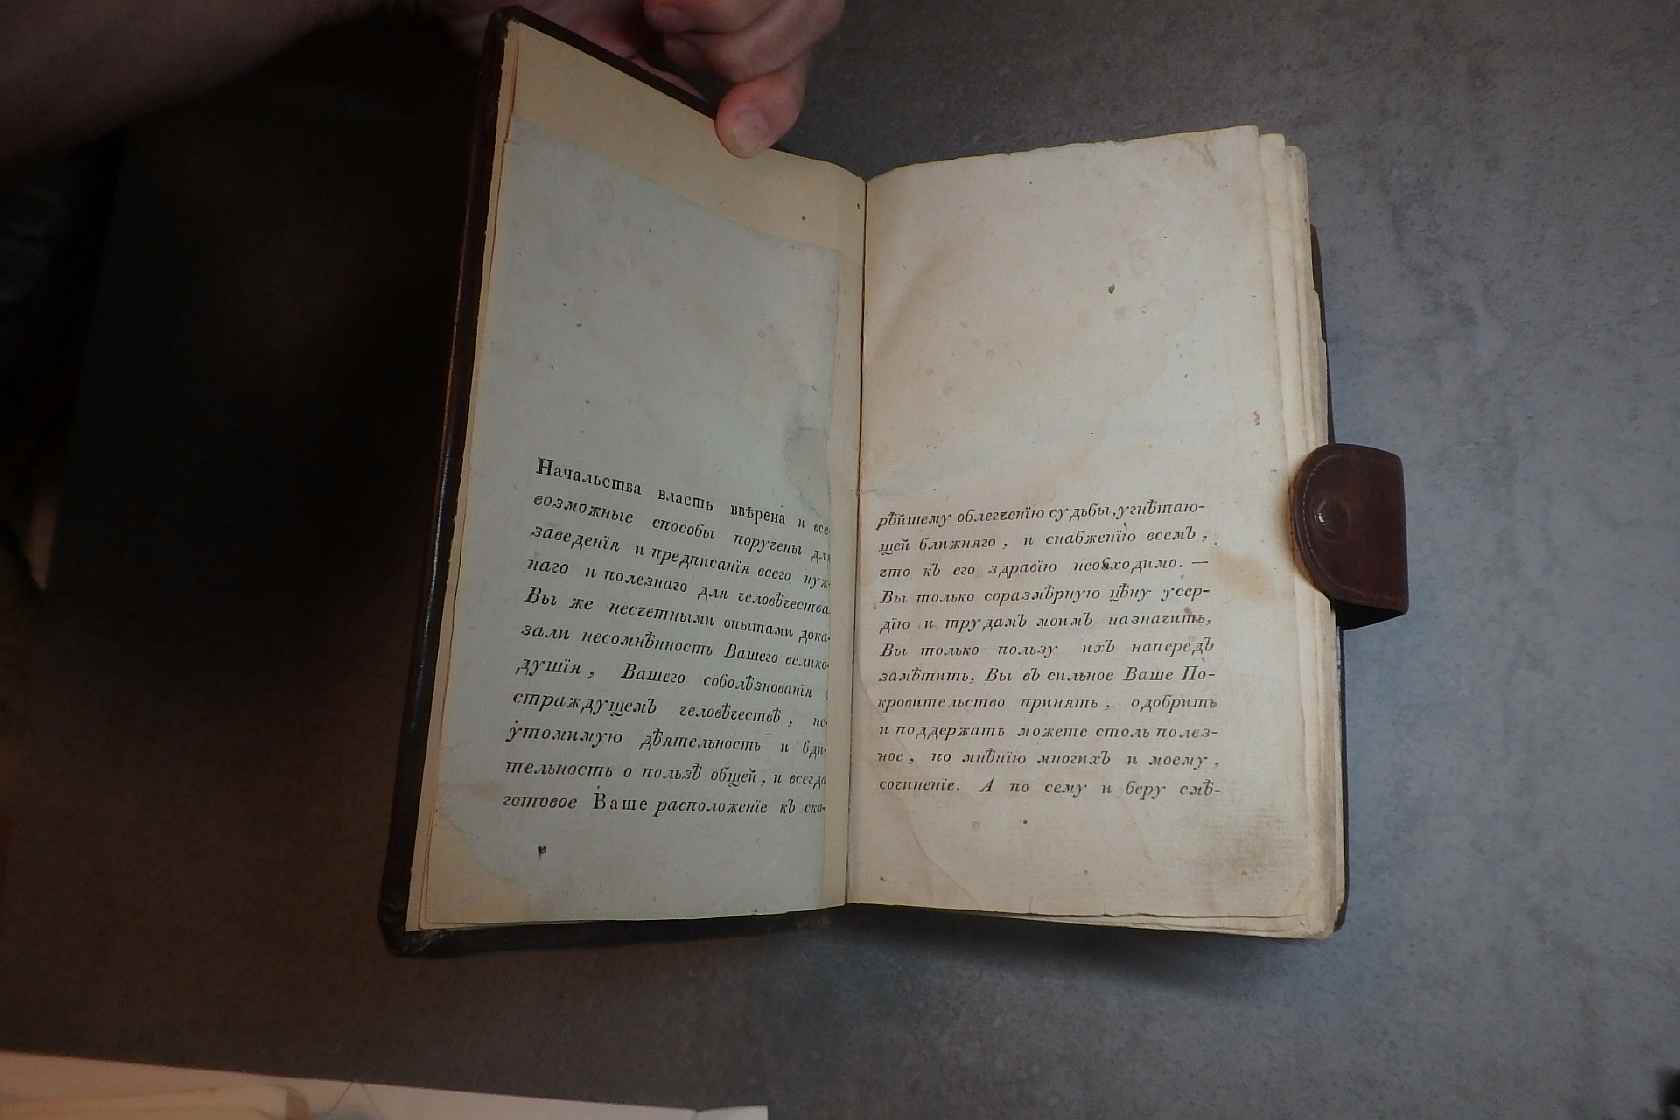 Начальства власть ввѣрена и все
возможные способы поручены для
заведенія и предписанія всего нуж-
наго и полезнаго для человѣчества
Вы же несчетными опытами дока-
зали несомнѣнность Вашего велико-
душія, Вашего соболѣзнованія
страждущемъ человѣчествѣ, не
утомимую дѣятельность и бди-
тельность о пользѣ общей, и всегда
готовое Ваше расположеніе къ ско-
рѣйшему облегченію судьбы, угнѣтаю-
щей ближняго, и снабженію всемъ,
что къ его здравію необходимо. —
Вы только соразмѣрную цѣну усер-
дію и трудамъ моимъ назначить,
Вы только пользу ихъ напередъ
замѣтить, Вы въ сильное Ваше По-
кровительство принять, одобрить
и поддержать можете столь полез-
ное, по мнѣнію многихъ и моему,
сочиненіе. А по сему и беру смѣ-